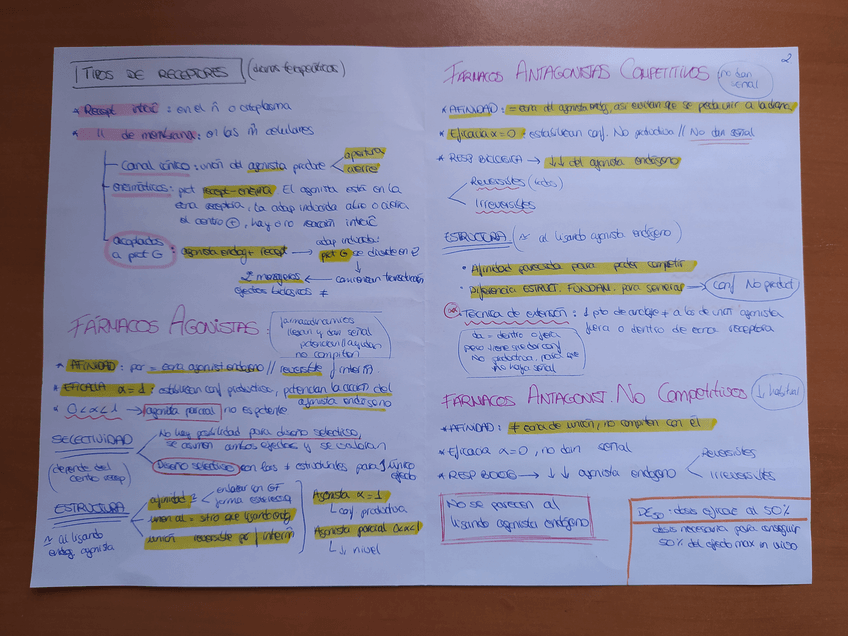 TIPOS DE RECEPTORES (dianas terapéuticas)
* Recept intrac : en el ñ o citoplasma
* " de membrana: en las m celulares
Canal iónico: unión del agonista produce
apertura
cierre
enzimáticos: prot recept-enzima El agonista está en la
cara receptora, la adap inducida abre o cierra
el centro, hay o no reacción intrac
acoplados
a prot G
: agonista endog + recept → adap inducida:
prot G se divide en 2
2º mensajeros ← comienzan transducción
efectos biológicos ≠
FÁRMACOS AGONISTAS:
farmacodinámicos
llegan y dan señal
potencian / ayudan
no compiten
* AFINIDAD: por = cara agonist endógeno // reversible
* EFICACIA α = 1: establecen conf productiva, potencian la acción del
agonista endógeno
* 0<α<1 → agonista parcial no es potente
SELECTIVIDAD
(depende del
centro recep)
No hay posibilidad para diseño selectivo,
se asumen ambos efectos y se valoran
Diseño selectivo con las ≠ estructurales para 1 único
efecto
ESTRUCTURA
≈ al ligando
endog agonista
afinidad
enlazar con GF
forma estérica
unión al = sitio que ligando endog
unión reversible
Agonista α = 1
conf productiva
Agonista parcial 0<α<1
↓ nivel
2
FÁRMACOS ANTAGONISTAS COMPETITIVOS
no dan
señal
* AFINIDAD: = cara del agonista endog, así evitan que se pueda unir a la diana
* Eficacia α = 0: establecen conf. No productiva // No dan señal
* RESP BIOLÓGICA → ↓↓ del agonista endógeno
Reversibles (todos)
Irreversibles
ESTRUCTURA (≈ al ligando agonista endógeno)
• Afinidad parecida para poder competir
• Diferencia ESTRUCT. FUNDAM. para señales → conf No product
Técnica de extensión: 1 pto de anclaje + a los de unión agonista
fuera o dentro de cara receptora
da = dentro o fuera
pero tiene que dar conf
No productiva, para que
No haya señal
FÁRMACOS ANTAGONIST. NO COMPETITIVOS
↓ habitual
* AFINIDAD: ≠ cara de unión, no compiten con él
* Eficacia α = 0, no dan señal
* RESP BIOLÓG → ↓↓ agonista endógeno
Reversibles
Irreversibles
No se parecen al
ligando agonista endógeno
DE50: dosis eficaz al 50%
dosis necesaria para conseguir
50% del efecto max in vivo